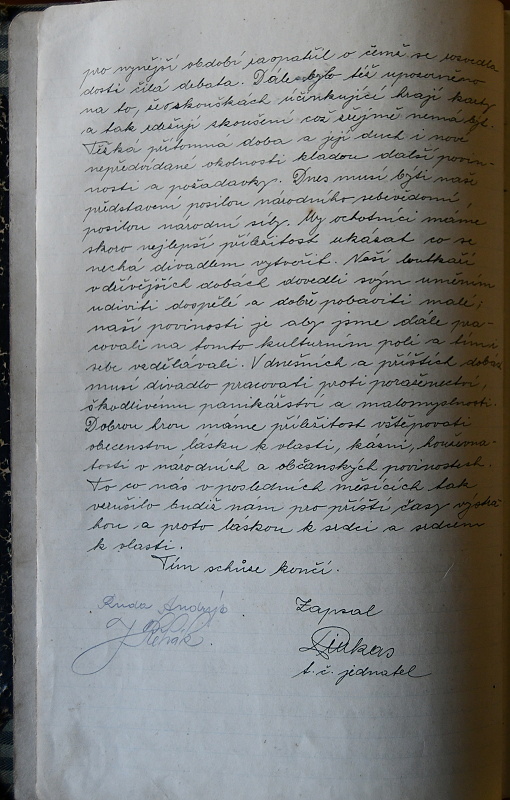 pro nynější období zaopatřil o čemž se rozvedla
dosti čilá debata. Dále bylo též upozorněno
na to, že v zkouškách účinkující hrají karty
a tak zdržují zkoušení což zřejmě nemá být.
Těžká přítomná doba a její duch i nové
nepředvídané okolnosti kladou další povin-
nosti a požadavky. Dnes musí býti naše
představení posilou národního sebevědomí,
posilou národní síly. My ochotníci máme
skoro nejlepší příležitost ukázat co se
nechá divadlem vytvořit. Naši loutkaři
v dřívějších dobách dovedli svým uměním
udiviti dospělé a dobře pobaviti malé;
naší povinosti je aby jsme dále pra-
covali na tomto kulturním poli a tím i
sebe vzdělávali. V dnešních a příštích dobách
musí divadlo pracovati proti poraženectví,
škodlivému panikářství a malomyslnosti.
Dobrou hrou máme příležitost vštěpovati
obecenstvu lásku k vlasti, kázni, houževna-
tosti v národních a občanských povinostech.
To co nás v posledních měsících tak
vzrušilo budiž nám pro příští časy výstra-
hou, a proto láskou k srdci a srdcem
k vlasti.
Tím schůze končí.
Ruda
Zapsal
Lukas
t. č. jednatel